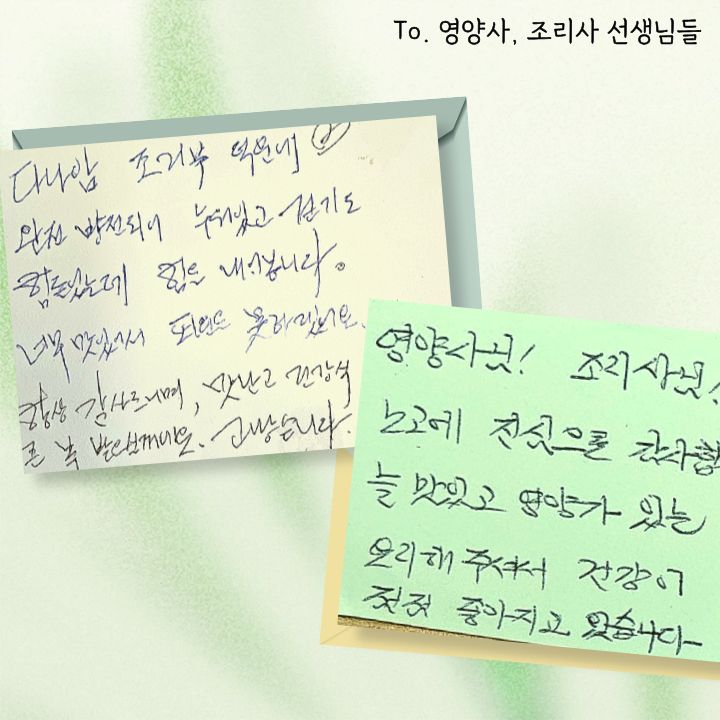 To. 영양사, 조리사 선생님들
다나암 조리부 덕분에
완전 방전되어 누워있고 걷기도
힘들었는데 힘을 내어봅니다.
너무 맛있어서
항상 감사드리며, 맛난고 건강식
고맙습니다.
영양사님! 조리사님!
노고에 진심으로 감사함
늘 맛있고 영양가 있는
요리해 주셔서 건강이
점점 좋아지고 있습니다